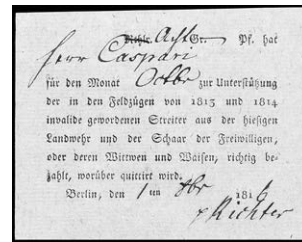 Rthlr. Acht Gr. Pf. hat
Herr Caspari
für den Monat Octbr zur Unterstützung
der in den Feldzügen von 1813 und 1814
invalide gewordenen Streiter aus der hiesigen
Landwehr und der Schaar der Freiwilligen,
oder deren Wittwen und Waisen, richtig be-
zahlt, worüber quittirt wird.
Berlin, den 1 ten 8br 1816
Richter